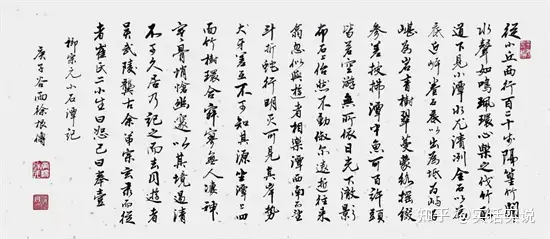 從小丘西行百二十步隔篁竹聞
水聲如鳴珮環心樂之伐竹取
道下見小潭水尤清冽全石以為
底近岸卷石底以出為坻為嶼為
嵁為岩青樹翠蔓蒙絡搖綴
參差披拂潭中魚可百許頭
皆若空游無所依日光下澈影
布石上佁然不動俶爾遠逝往來
翕忽似與遊者相樂潭西南而望
斗折蛇行明灭可見其岸勢
犬牙差互不可知其源坐潭上四
面竹樹環合寂寥無人淒神
寒骨悄愴幽邃以其境過清
不可久居乃記之而去同遊者
吳武陵龔古余弟宗玄隸而從
者崔氏二小生曰恕己曰奉壹
柳宗元小石潭記
庚子谷雨徐根
知乎